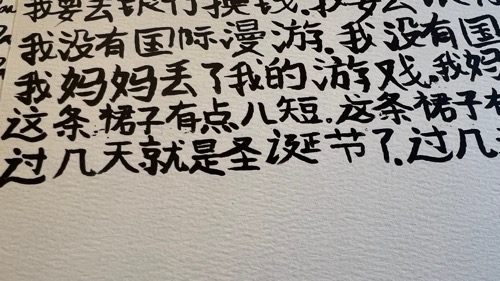 我要去银行换钱.我要去银
我没有国际漫游.我没有国
我妈妈丢了我的游戏.我妈
这条裙子有点儿短.这条裙子有
过几天就是圣诞节了.过几天